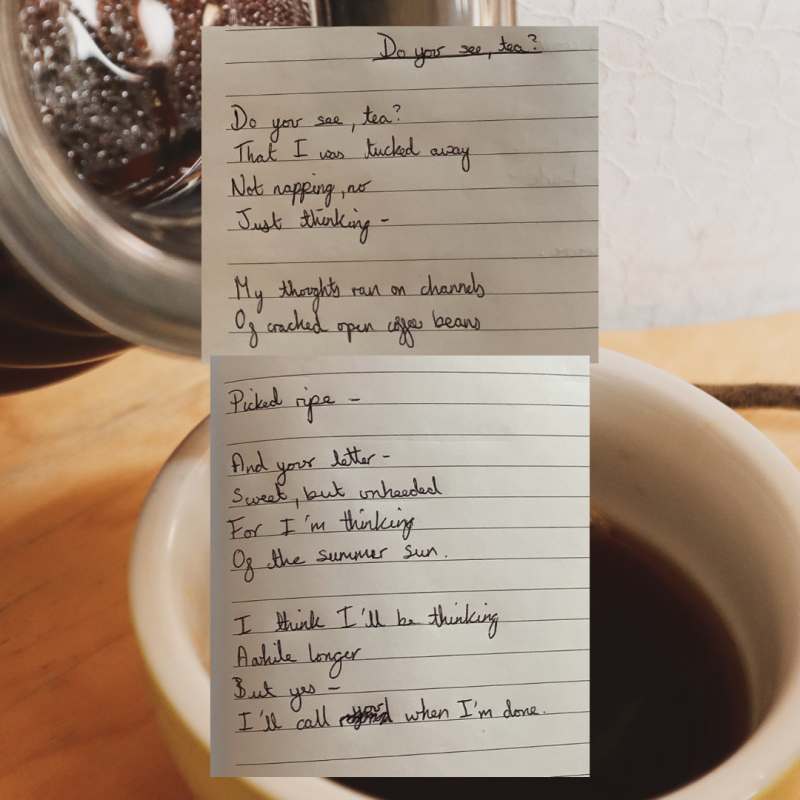 Do you see, tea?
Do you see, tea?
That I was tucked away
Not napping, no
Just thinking -
My thoughts ran on channels
Of cracked open coffee beans
Picked ripe -
And your letter -
Sweet, but unheeded
For I'm thinking
Of the summer sun.
I think I'll be thinking
Awhile longer
But yes -
I'll call when I'm done.